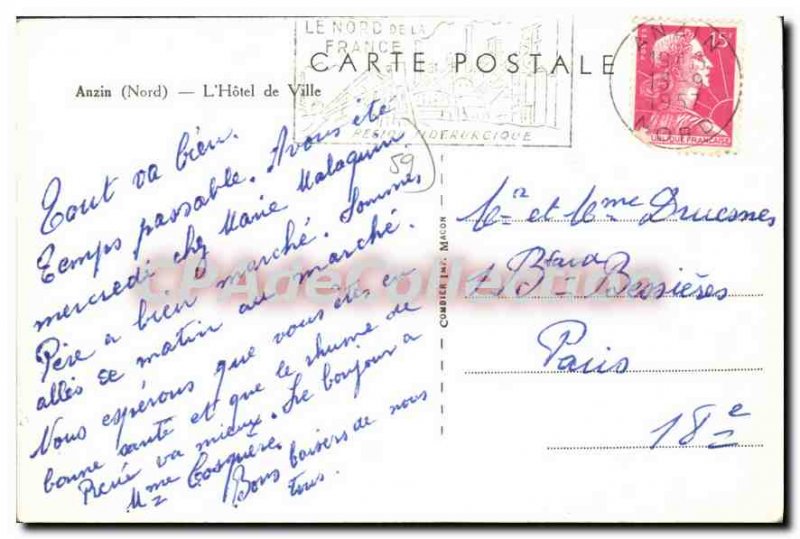 LE NORD DE LA
FRANCE
RÉGION SIDÉRURGIQUE
CARTE POSTALE
Anzin (Nord) — L'Hôtel de Ville
15F
ANZIN
NORD
RÉPUBLIQUE FRANÇAISE
59
Tout va bien.
Temps passable. Avons été
mercredi chez Marie Malaquin.
Père a bien marché. Sommes
allés ce matin au marché.
Nous espérons que vous êtes en
bonne santé et que le rhume de
René va mieux. Le bonjour à
Mme
Bons baisers de nous
tous.
COMBIER IMP. MACON
Mr et Mme Druesnes
1 Bd Bessières
Paris
18e
CPADeCollection